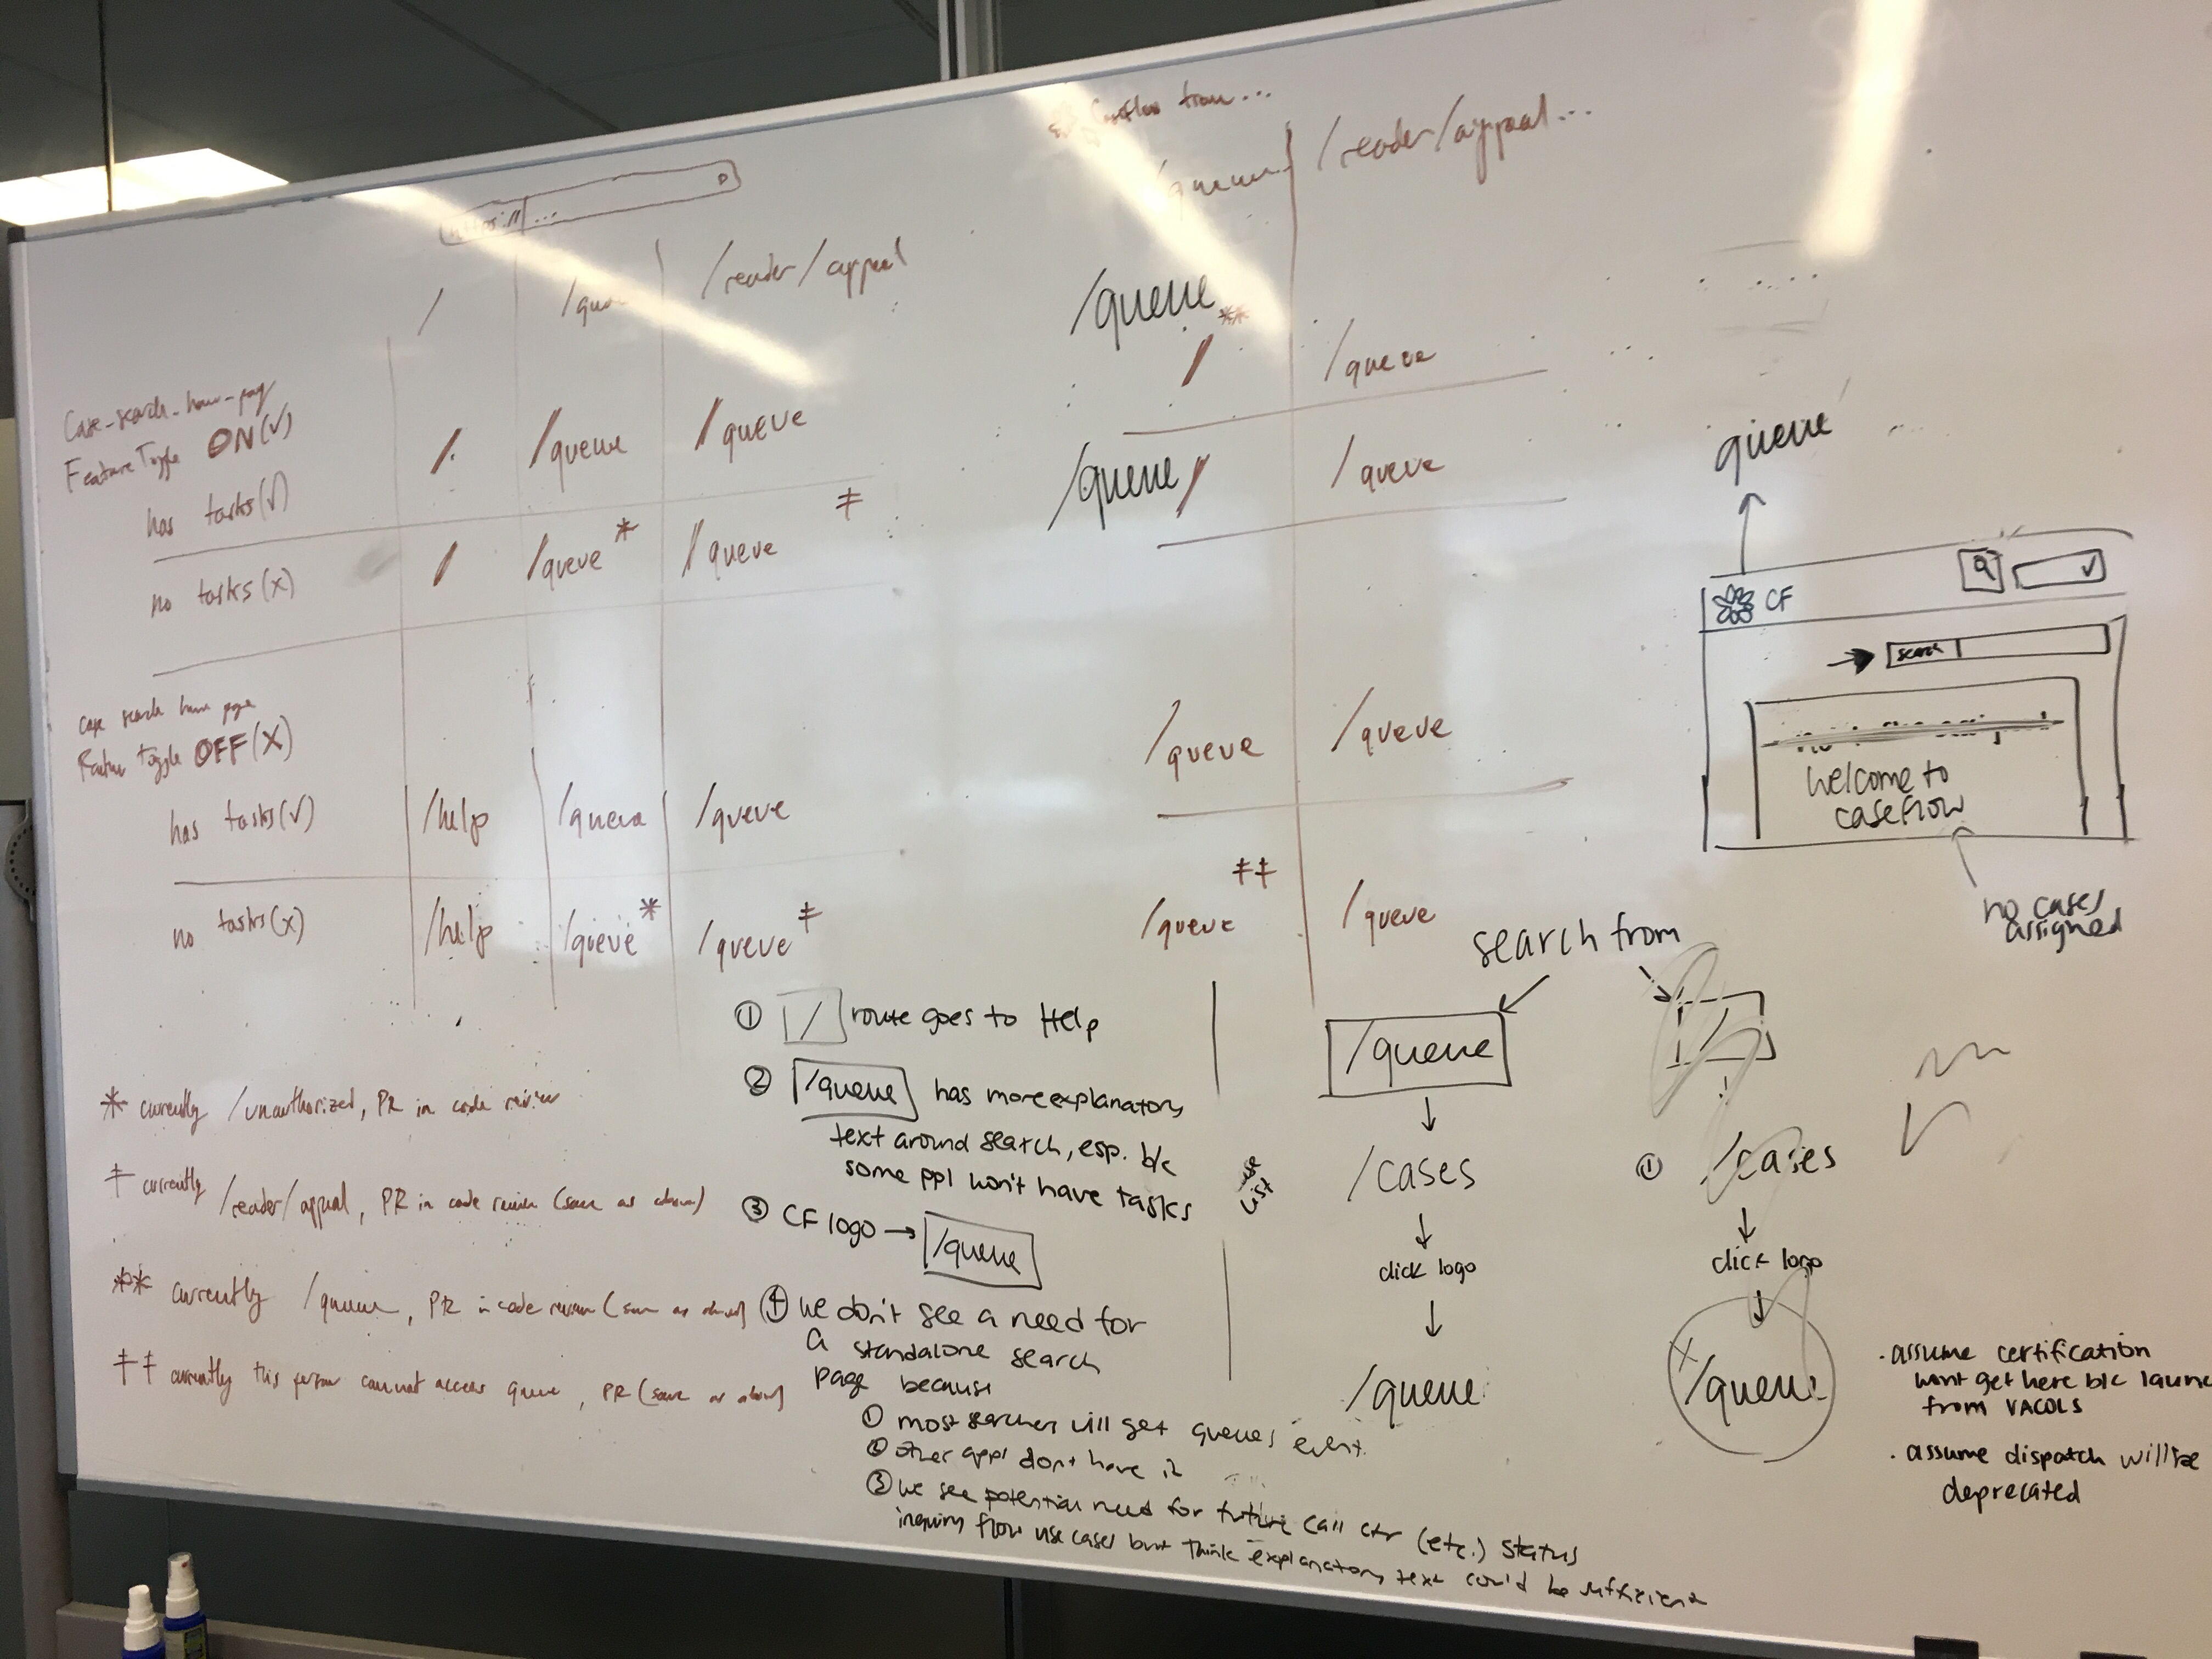 https:// ...
/ /reader/appeal
Caseflow from...
/queue /reader/appeal...
Case-search-home-page
Feature Toggle ON (√)
has tasks (√) / /queue /queue
no tasks (x) / /queue* /queue ‡
/queue** / /queue
/queue / /queue
case search home page
Feature Toggle OFF (X)
has tasks (√) /help /queue /queue
no tasks (x) /help /queue* /queue ‡
/queue /queue
/queue ‡‡ /queue
* currently /unauthorized, PR in code review
‡ currently /reader/appeal, PR in code review (same as above)
** currently /queue, PR in code review (same as above)
‡‡ currently this person cannot access queue, PR (same as above)
① / route goes to Help
② /queue has more explanatory
text around search, esp. b/c
some ppl won't have tasks
③ CF logo → /queue
④ we don't see a need for
a standalone search
page because
① most searchers will get queues event.
② other appl don't have it
③ we see potential need for future call ctr (etc.) status
inquiry flow use cases but think explanatory text could be sufficient
use
list
search from
/queue
/cases
click logo
/queue
/
① /cases
click logo
x /queue
queue
CF
search
welcome to
caseflow
no cases
assigned
. assume certification
wont get here b/c launc
from VACOLS
. assume dispatch will be
deprecated